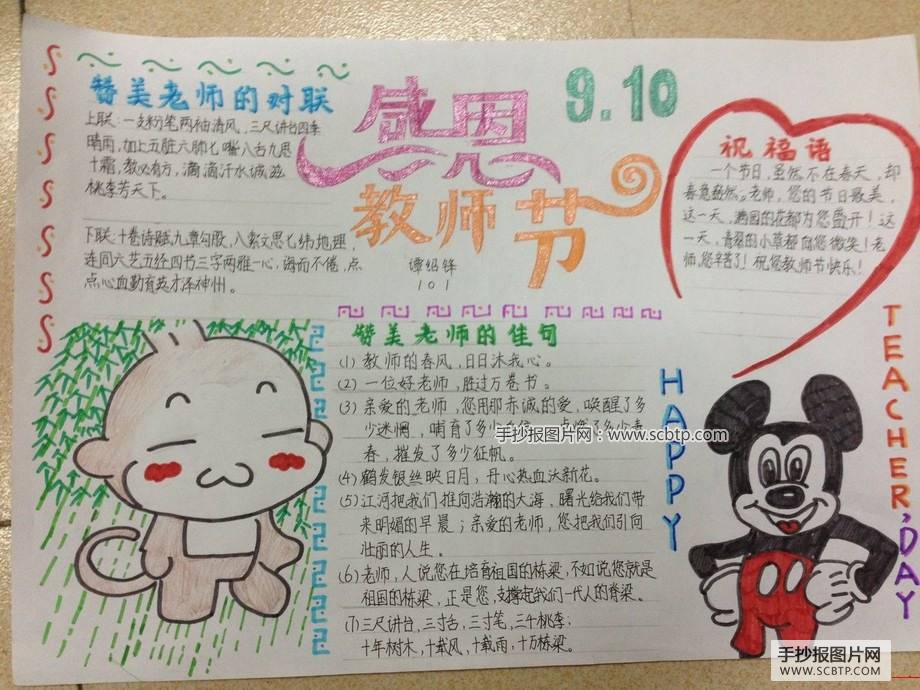 赞美老师的对联
上联:一支粉笔两袖清风,三尺讲台四季
晴雨,加上五脏六肺七嘴八舌九思
十霜,教必有方,滴滴汗水诚滋
桃李芳天下。
下联:十卷诗赋九章勾股,八索文思七纬地理,
连同六艺五经四节三字两雅一心,诲而不倦,点
点心血勤育英才泽神州。
感恩
教师节
谭绍锋
101
9.10
祝福语
一个节日,虽然不在春天,却
春意盎然。老师,您的节日最美,
这一天,满园的花都为您盛开!这
一天,青翠的小草都向您微笑!老
师,您辛苦了!祝您教师节快乐!
赞美老师的佳句
(1) 教师的春风,日日沐我心。
(2) 一位好老师,胜过万卷书。
(3) 亲爱的老师,您用那赤诚的爱,唤醒了多
少迷惘,哺育了多少
春,摧发了多少征帆。
(4) 鹤发银丝映日月,丹心热血沃新花。
(5) 江河把我们推向浩瀚的大海,曙光给我们带
来明媚的早晨;亲爱的老师,您把我们引向
壮丽的人生。
(6) 老师,人说您在培育祖国的栋梁,不如说您就是
祖国的栋梁,正是您,支撑起我们一代人的脊梁。
(7) 三尺讲台,三寸舌,三寸笔,三千桃李;
十年树木,十载风,十载雨,十万栋梁。
HAPPY
TEACHER,DAY
手抄报图片网:www.scbtp.com
手抄报图片网
WWW.SCBTP.COM